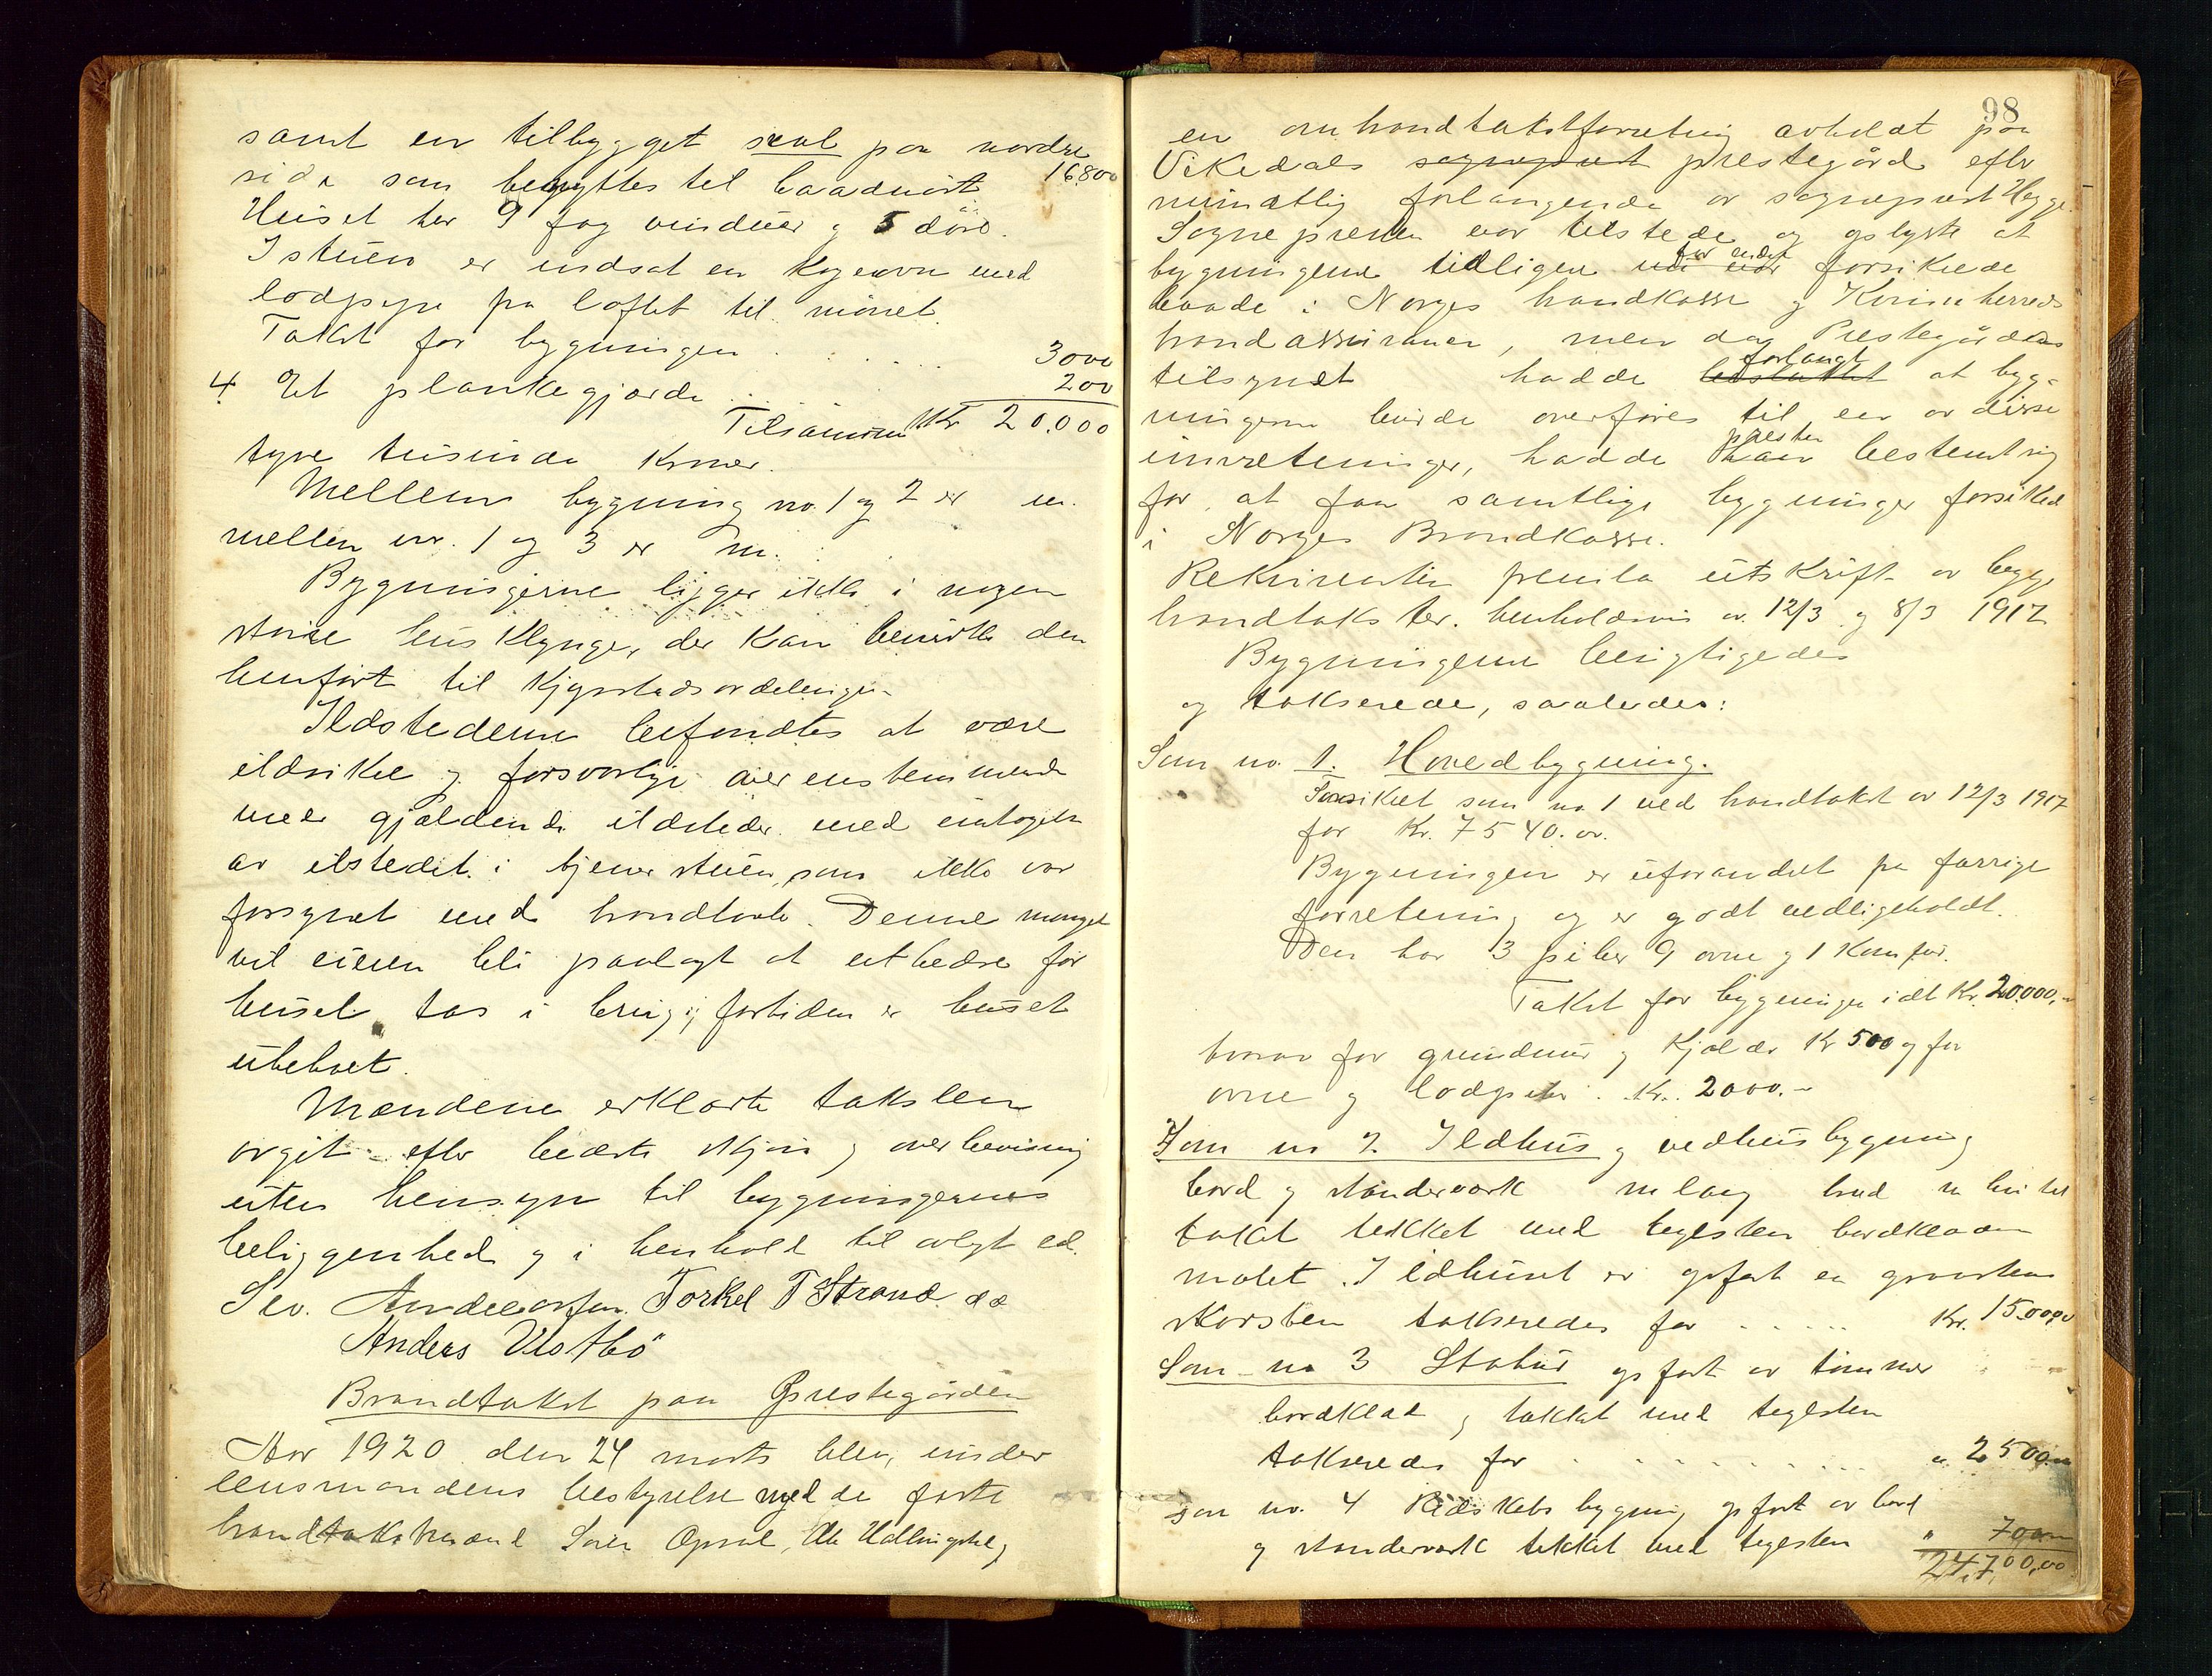 samt en tilbygget sval paa nordre
side som benyttes til baadnöst 16800
Huset har 9 fag vinduer og 5 döre.
I stuen er indsat en kogeovn med
lodpipe fra loftet til mönet.
Takst for bygningen . . . . 3000
4. Et plankegjærde . . . . 200
Tilsammen Kr 20.000
tyve tusinde kroner.
Mellem bygning no. 1 og 2 er m.
mellem nr. 1 og 3 er m.
Bygningerne ligger ikke i nogen
större husklynge, der kan bevirke den
henfört til Kjöpstadsavdelingen
Ildstederne befandtes at være
ildsikre og forsvarlige overenstemmende
med gjældende ildsteder med undtagelse
av ildstedet i tjenerstuen, som ikke var
forsynet med brandtavle. Denne mangel
vil eieren bli paalagt at utbedre för
huset tas i brug; fortiden er huset
ubeboet.
Mændene erklærte taksten
avgit efter bedste skjön og overbevisning
uten hensyn til bygningernes
beliggenhed og i henhold til avlagt ed.
Sev. Torkel T Strand
Anders Vestbö
Brandtakst paa Prestegården
Aar 1920 den 24 marts blev, under
lensmandens bestyrelse med de faste
brandtakstmænd Sören Opsal, Hallingstad,
98
en brandtakstforretning avholdt paa
Vikedals sogneprest prestegård efter
mundtlig forlangende av sogneprest Hegge.
Sognepresten var tilstede og oplyste at
bygningerne tidligere har været forsikrede
baade i Norges brandkasse og Kvinnherreds
brandassurance, men da Prestegårdens
tilsynet hadde forlangt at byg-
ningerne burde overföres til en av disse
inretninger, hadde presten bestemt sig
for at faa samtlige bygninger forsikret
i Norges Brandkasse.
Rekvirenten fremla utskrift av begge
brandtakster. henholdsvis av 12/3 og 8/3 1917
Bygningerne besigtigedes
og takseredes, saaledes:
Som no. 1. Hovedbygning.
Forsikret som no 1 ved brandtakst av 12/3 1917
for Kr. 7540.00.
Bygningen er uforandret fra forrige
forretning og er godt vedligeholdt.
Den har 3 piber 9 ovne og 1 Komfur.
Takst for bygningen i alt Kr. 20.000,-
hvorav for grundmur og Kjælder Kr 500 og for
ovne og lodpiber. Kr. 2000.-
Som no 2. Ildhus og vedhusbygning
bord og standerværk m lang bred m höi til
taket tækket med teglsten bordklædt
malet. I ildhuset er opfört en graastens
skorsten takseredes for . . . . . Kr. 15.00,00
Som no 3 Stabur opfört av tömmer
bordklæd og tækket med teglsten
takseredes for . . . . . . . " 2500.00
Som no. 4 Redskabsbygning opfört av bord
og standerværk tækket med teglsten " 700,00
24,700,00